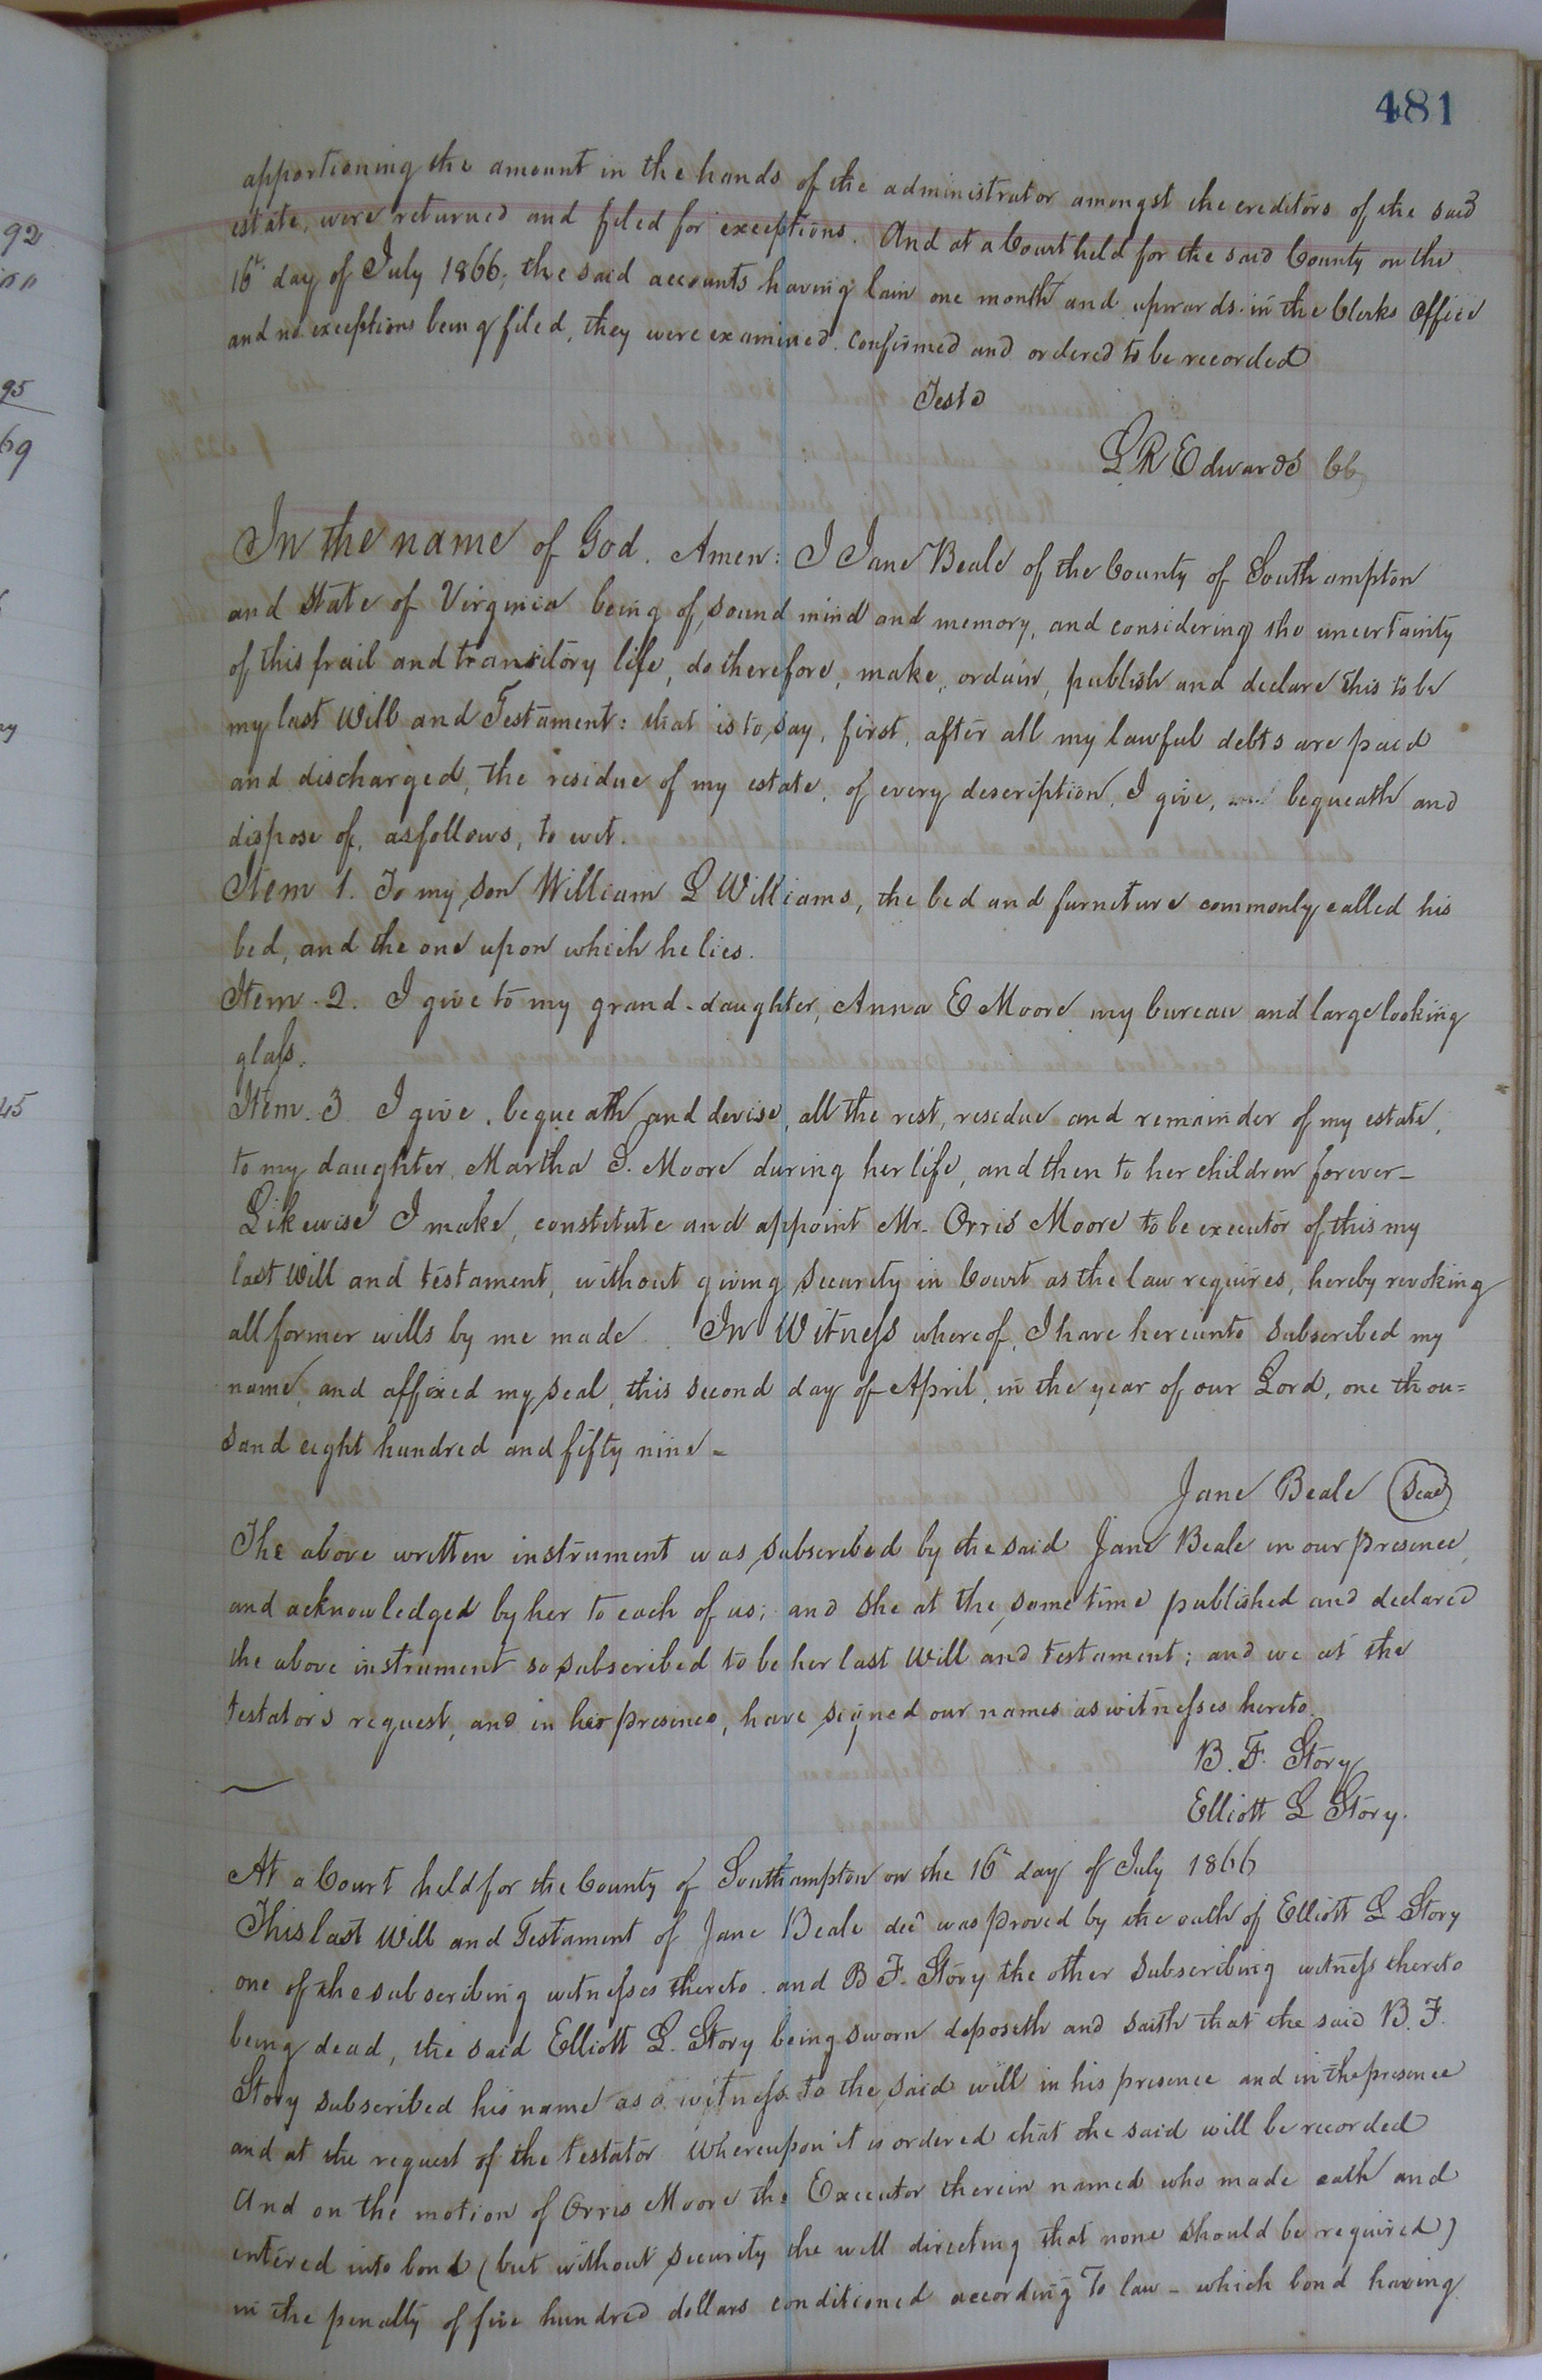 481
92
95
69
45
apportioning the amount in the hands of the administrator amongst the creditors of the said
estate, were returned and filed for exceptions. And at a Court held for the said County on the
16th day of July 1866, the said accounts having lain one month and upwards in the Clerks Office
and no exceptions being filed, they were examined. confirmed and ordered to be recorded
Teste
L R Edwards CC
In the name of God. Amen: I Jane Beale of the County of Southampton
and State of Virginia being of sound mind and memory, and considering the uncertainty
of this frail and transitory life, do therefore, make, ordain, publish and declare this to be
my last Will and Testament: that is to say, first, after all my lawful debts are paid
and discharged, the residue of my estate, of every description, I give, bequeath and
dispose of, as follows, to wit.
Item 1. To my son William L Williams, the bed and furniture commonly called his
bed, and the one upon which he lies.
Item 2. I give to my grand-daughter, Anna E Moore my bureau and large looking
glass.
Item 3 I give, bequeath and devise, all the rest, residue and remainder of my estate,
to my daughter Martha S. Moore during her life, and then to her children forever-
Likewise I make, constitute and appoint Mr. Orris Moore to be executor of this my
last Will and testament, without giving security in Court as the law requires, hereby revoking
all former wills by me made. In Witness whereof, I have hereunto subscribed my
name, and affixed my seal, this second day of April, in the year of our Lord, one thou=
sand eight hundred and fifty nine-
Jane Beale (Seal)
The above written instrument was subscribed by the said Jane Beale in our presence,
and acknowledged by her to each of us; and she at the same time published and declared
the above instrument so subscribed to be her last Will and testament; and we at the
testators request, and in her presence, have signed our names as witnesses hereto.
B. F. Story
Elliott L Story.
At a Court held for the County of Southampton on the 16th day of July 1866
This last Will and Testament of Jane Beale decd was proved by the oath of Elliott L Story
one of the subscribing witnesses thereto. and B F. Story the other subscribing witness thereto
being dead, the said Elliott L. Story being sworn deposeth and saith that the said B. F.
Story subscribed his name as a witness to the said will in his presence and in the presence
and at the request of the testator Whereupon it is ordered that the said will be recorded
And on the motion of Orris Moore the Executor therein named who made oath and
entered into bond (but without security the will directing that none should be required)
in the penalty of five hundred dollars conditioned according to law - which bond having